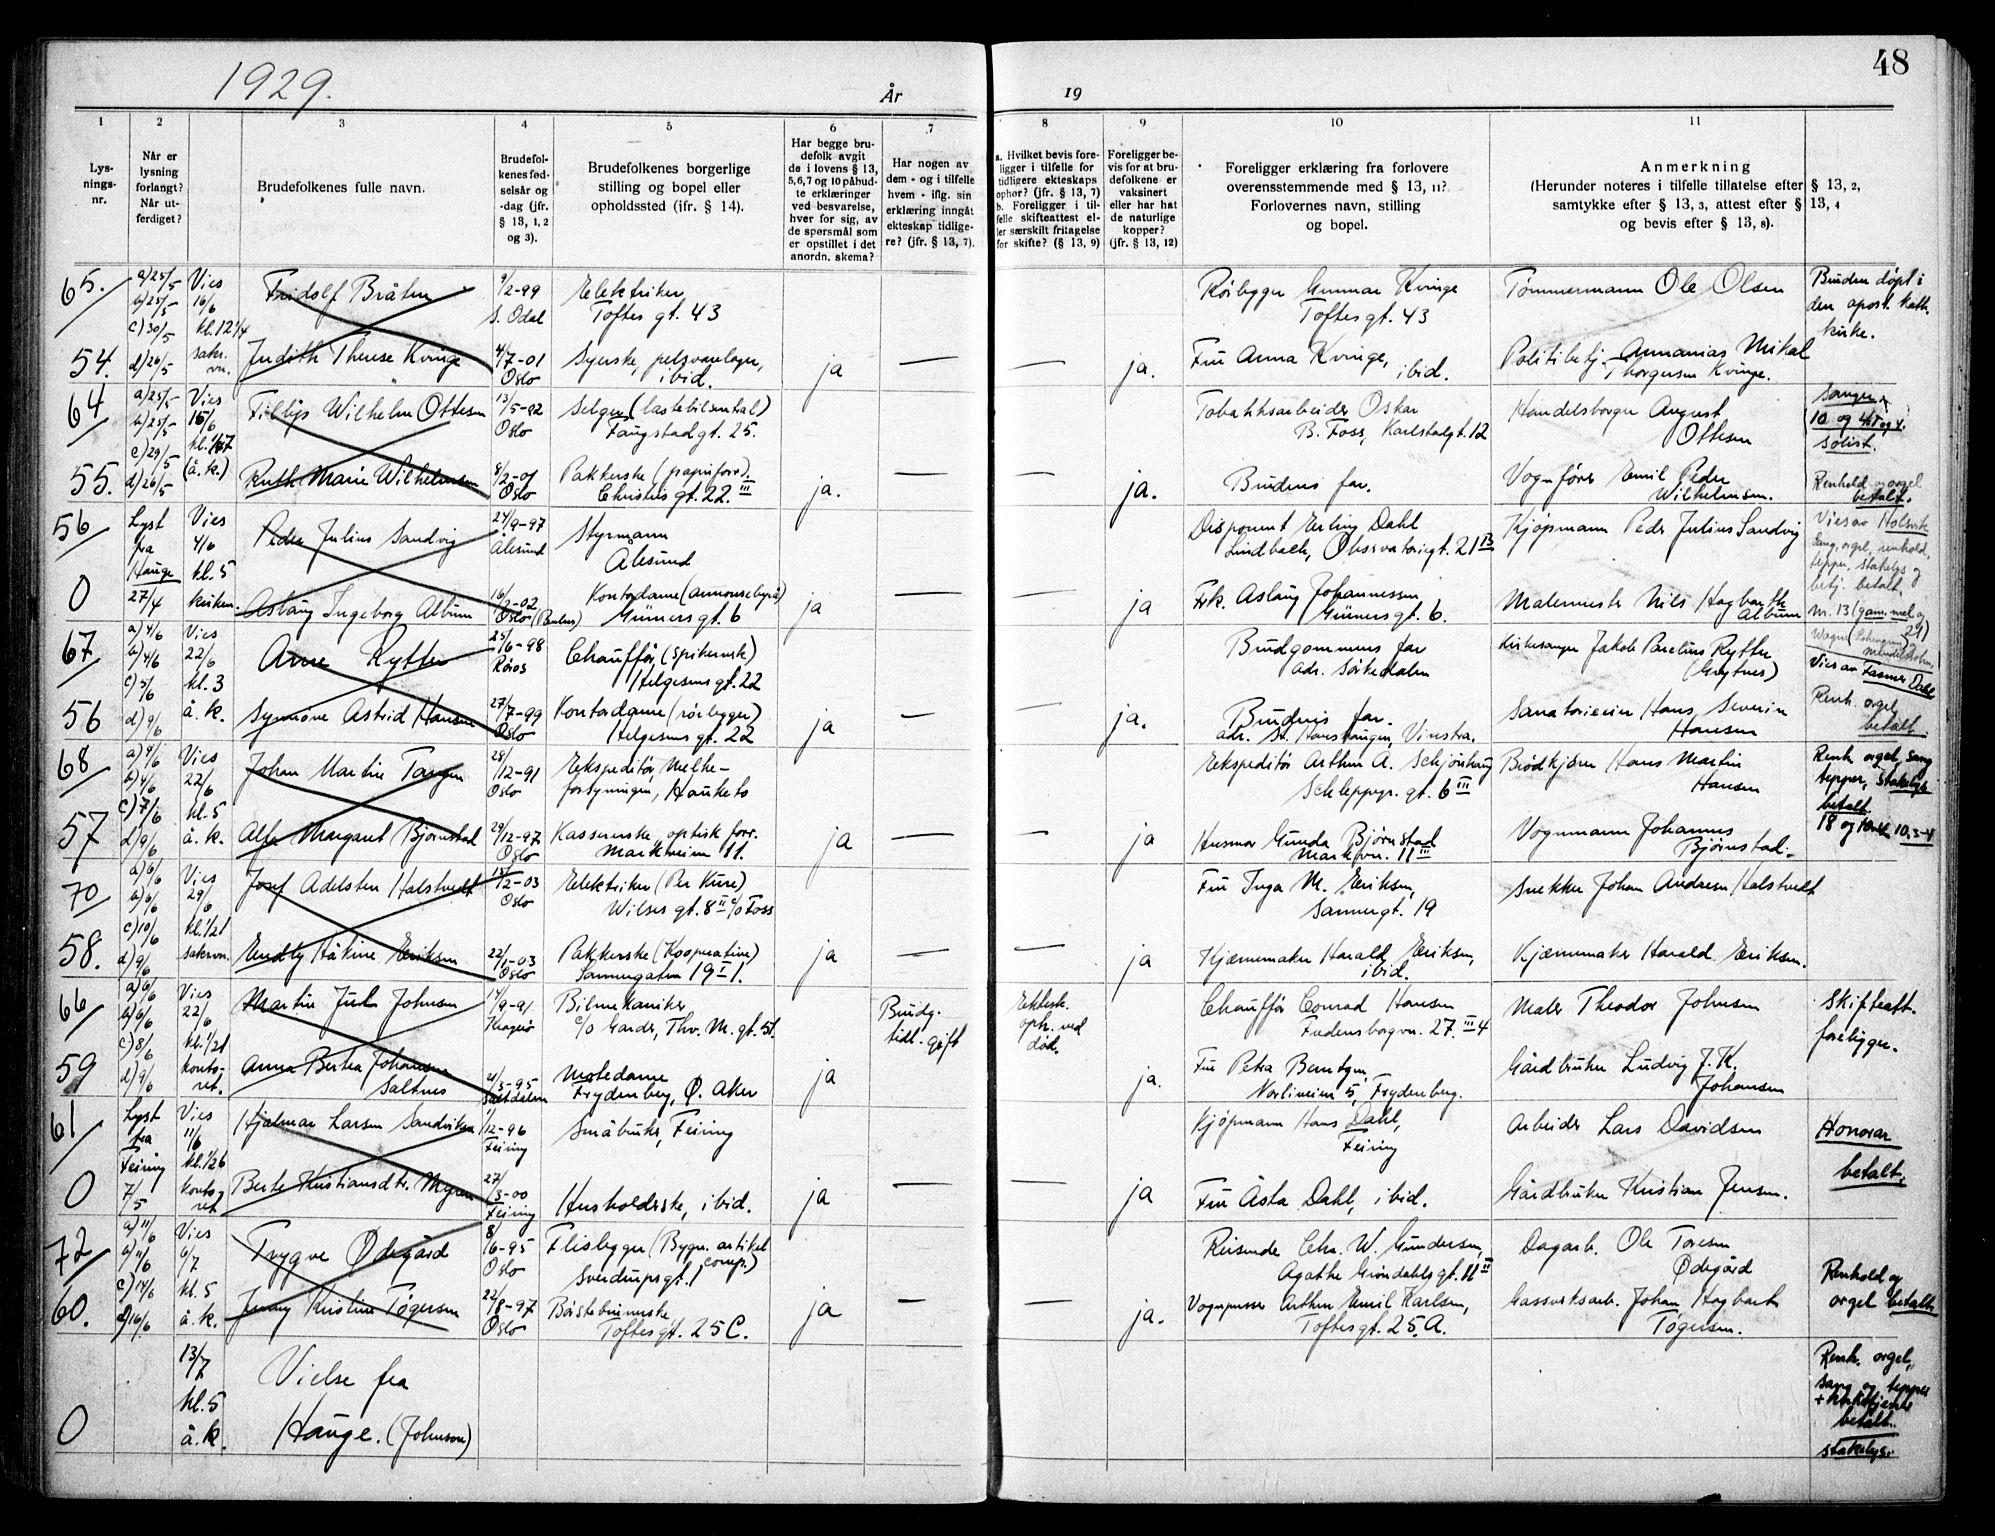 48
1929.
År
19
1
2
3
4
5
6
7
8
9
10
11
Lys-
nings-
nr.
Når er
lysning
forlangt?
Når ut-
ferdiget?
Brudefolkenes fulle navn.
Brudefol-
kenes fød-
selsår og
-dag (jfr.
§ 13, 1, 2
og 3).
Brudefolkenes borgerlige
stilling og bopel eller
opholdssted (jfr. § 14).
Har begge bru-
defolk avgit
de i lovens § 13,
5,6,7 og 10 påbud-
te erklæringer
ved besvarelse,
hver for sig, av
de spørsmål som
er opstillet i det
anordn. skema?
Har nogen av
dem - og i tilfelle
hvem - iflg. sin
erklæring inngått
ekteskap tidlige-
re? (jfr. § 13, 7).
a. Hvilket bevis fore-
ligger i tilfelle for
tidligere ekteskaps
ophør? (jfr. § 13, 7)
b. Foreligger i til-
felle skifteattest el-
ler særskilt fritagelse
for skifte? (§ 13, 9)
Foreligger be-
vis for at bru-
defolkene er
vaksinert
eller har hat
de naturlige
kopper?
(jfr. § 13, 12)
Foreligger erklæring fra forlovere
overensstemmende med § 13, 11?
Forlovernes navn, stilling
og bopel.
Anmerkning
(Herunder noteres i tilfelle tillatelse efter § 13, 2,
samtykke efter § 13, 3, attest efter § 13, 4
og bevis efter § 13, 8).
65.
54.
a) 25/5
b) 25/5
c) 30/5
d) 26/5
Vies
16/6
kl. 12 1/4
sakr.
vn.
Fridolf Bråten
9/2-99
S. Odal
Elektriker
Toftes gt. 43
Rørlegger Gunnar Kvinge
Toftes gt. 43
Tømmermann Ole Olsen
Bruden døpt i
den apost. kath.
kirke.
Judith Therese Kvinge
4/7-01
Oslo
Syerske, pelsvarelager,
ibid.
ja
—
—
ja.
Fru Anna Kvinge,
ibid.
Politibetj. Annanias Mikal
Thorgersen Kvinge.
64
55.
a) 25/5
b) 25/5
c) 29/5
d) 26/5
Vies
15/6
(å. k.)
Fillip Wilhelm Ottesen
13/5-92
Oslo
Selger (lastebilsentral)
Faugstadgt. 25.
Tobakksarbeider Oskar
B. Foss, Karlstadgt. 12
Handelsborger August
Ottesen
Sanger
solist.
Ruth Marie Wilhelmsen
8/2-01
Oslo
Pakkerske (papirforr).
Christies gt. 22 III
ja.
—
—
ja.
Brudens far.
Vognfører Emil Peder
Wilhelmsen.
Renhold og orgel
betalt.
56
0
Lyst
fra
Hauge
27/4
Vies
4/6
kl. 5
kirken.
Peder Julius Sandvig
24/9-97
Ålesund
Styrmann
Ålesund
Disponent Erling Dahl
Lindbach, Observatoriegt. 21 B
Kjøpmann Peder Julius Sandvig
Vies av Holsvik
Sang, orgel, renhold,
tepper, stakelys og
betj. betalt,
Aslaug Ingeborg Album
16/2-02
Kontordame (annonsebyrå)
Grüners gt. 6
ja
—
ja
Frk. Aslaug Johannessen
Grüners gt. 6.
Malermester Nils Hagbarth
Album
67
56
a) 4/6
b) 4/6
c) 5/6
d) 9/6
Vies
22/6
kl. 3
å. k.
Arne Rytter
25/6-98
Røros
Chauffør, (spikerverk)
Helgesens gt. 22
Brudgommens far
adr. Sørkedalen
Kirkesanger Jakob Parelius Rytter
Vies av Fasmer Dahl
Synnøve Astrid Hansen
27/7-99
Oslo
Kontordame (rørlegger)
Helgesens gt. 22
ja
—
—
ja.
Brudens far.
adr. St. Hanshaugen, Vinstra.
Sanatorieeier Hans Severin
Hansen
Renh. orgel
betalt
68
57
a) 4/6
b) 4/6
c) 7/6
d) 9/6
Vies
22/6
kl. 5
å. k.
Johan Martin Tangen
28/12-91
Oslo
Ekspeditør, Melke-
forsyningen,
Ekspeditør Arthur A. Schjønhaug
Schleppegr. gt. 6 III
Brødkjører Hans Martin
Hansen
Renh. orgel, sang
tepper, stakelys
betalt
Alfa Margaret Bjørnstad
29/12-97
Oslo
Kasserske, optisk forr.
Markveien 11.
ja
—
—
ja
Husmor Gunda Bjørnstad
Markvn. 11 III
Vognmann Johannes
Bjørnstad.
70
58.
a) 6/6
b) 6/6
c) 10/6
d) 9/6
Vies
29/6
kl. 1/2 1
sakrvn.
Josef Adelsten Halstvedt
12/2-03
Oslo
Elektriker (Per Kure)
Wilses gt. 8 II c/o Foss
Fru Inga M. Eriksen,
Sannergt. 19
Snekker Johan Andresen Halstvedt
Håkine Eriksen
22/1-03
Oslo
Pakkerske (Kooperative)
Sannergaten 19 I 1.
ja
—
—
ja
Kjærnemaker Harald Eriksen,
ibid.
Kjærnemaker Harald Eriksen.
66
59
a) 6/6
b) 6/6
c) 8/6
d) 9/6
Vies
22/6
kl. 1/2 1
konto-
ret.
Martin Juel Johnsen
14/9-91
Kragerø
Bilmekaniker
c/o Garder, Thv. M. gt. 51.
Brudg.
tidl. gift
Ektesk.
oph. ved
død.
Chauffør Conrad Hansen
Fredensborgvn. 27 III 4
Maler Theodor Johnsen
Skifteatt.
foreligger.
Anna Bertea Johansen
Saltnes
21/3-95
Saltdalen
Motedame
Frydenberg, Ø. Aker
ja
ja.
Fru Petra Berntzen,
5, Frydenberg.
Gårdbruker Ludvig J. K.
Johansen
61
0
Lyst
fra
Feiring
7/5
Vies
11/6
kl. 1/2 6
konto-
ret
Hjalmar Larsen Sandviken
1/12-96
Feiring
Småbruker, Feiring
Kjøpmann Hans Dahl,
Feiring
Arbeider Lars Davidsen
Honorar
betalt.
Berte Kristiansdtr. Myren
27/3-00
Feiring
Husholderske, ibid.
ja
—
ja
Fru Åsta Dahl, ibid.
Gårdbruker Kristian Jensen.
72
60.
a) 11/6
b) 11/6
c) 14/6
d) 16/6
Vies
6/7
kl. 5
å. k.
Trygve Ødegård
8/6-95
Oslo
Flislegger (Bygn. artikel
comp.)
Sverdrupsgt. 1
Reisende Chr. W. Gundersen,
Agathe Grøndahls gt. 11 II
Dagarb. Ole Toresen
Ødegård
Renhold og
orgel betalt
Jenny Kristine Tøgersen
22/8-97
Oslo
Børstebinnerske
Toftes gt. 25 C.
ja
—
—
ja.
Vognpusser Arthur Emil Karlsen,
Toftes gt. 25. A.
Gassverksarb. Johan Hagbart
Tøgersen.
0
13/7
kl. 5
å. k.
Vielse fra
Hauge. (Johnson)
Renh. orgel,
sang og tepper
betalt.
stakelys.